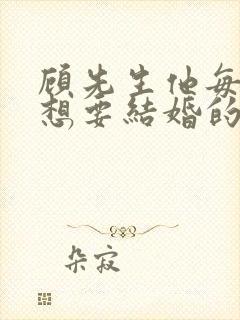 顾先生他每
想要结婚的
朵寂